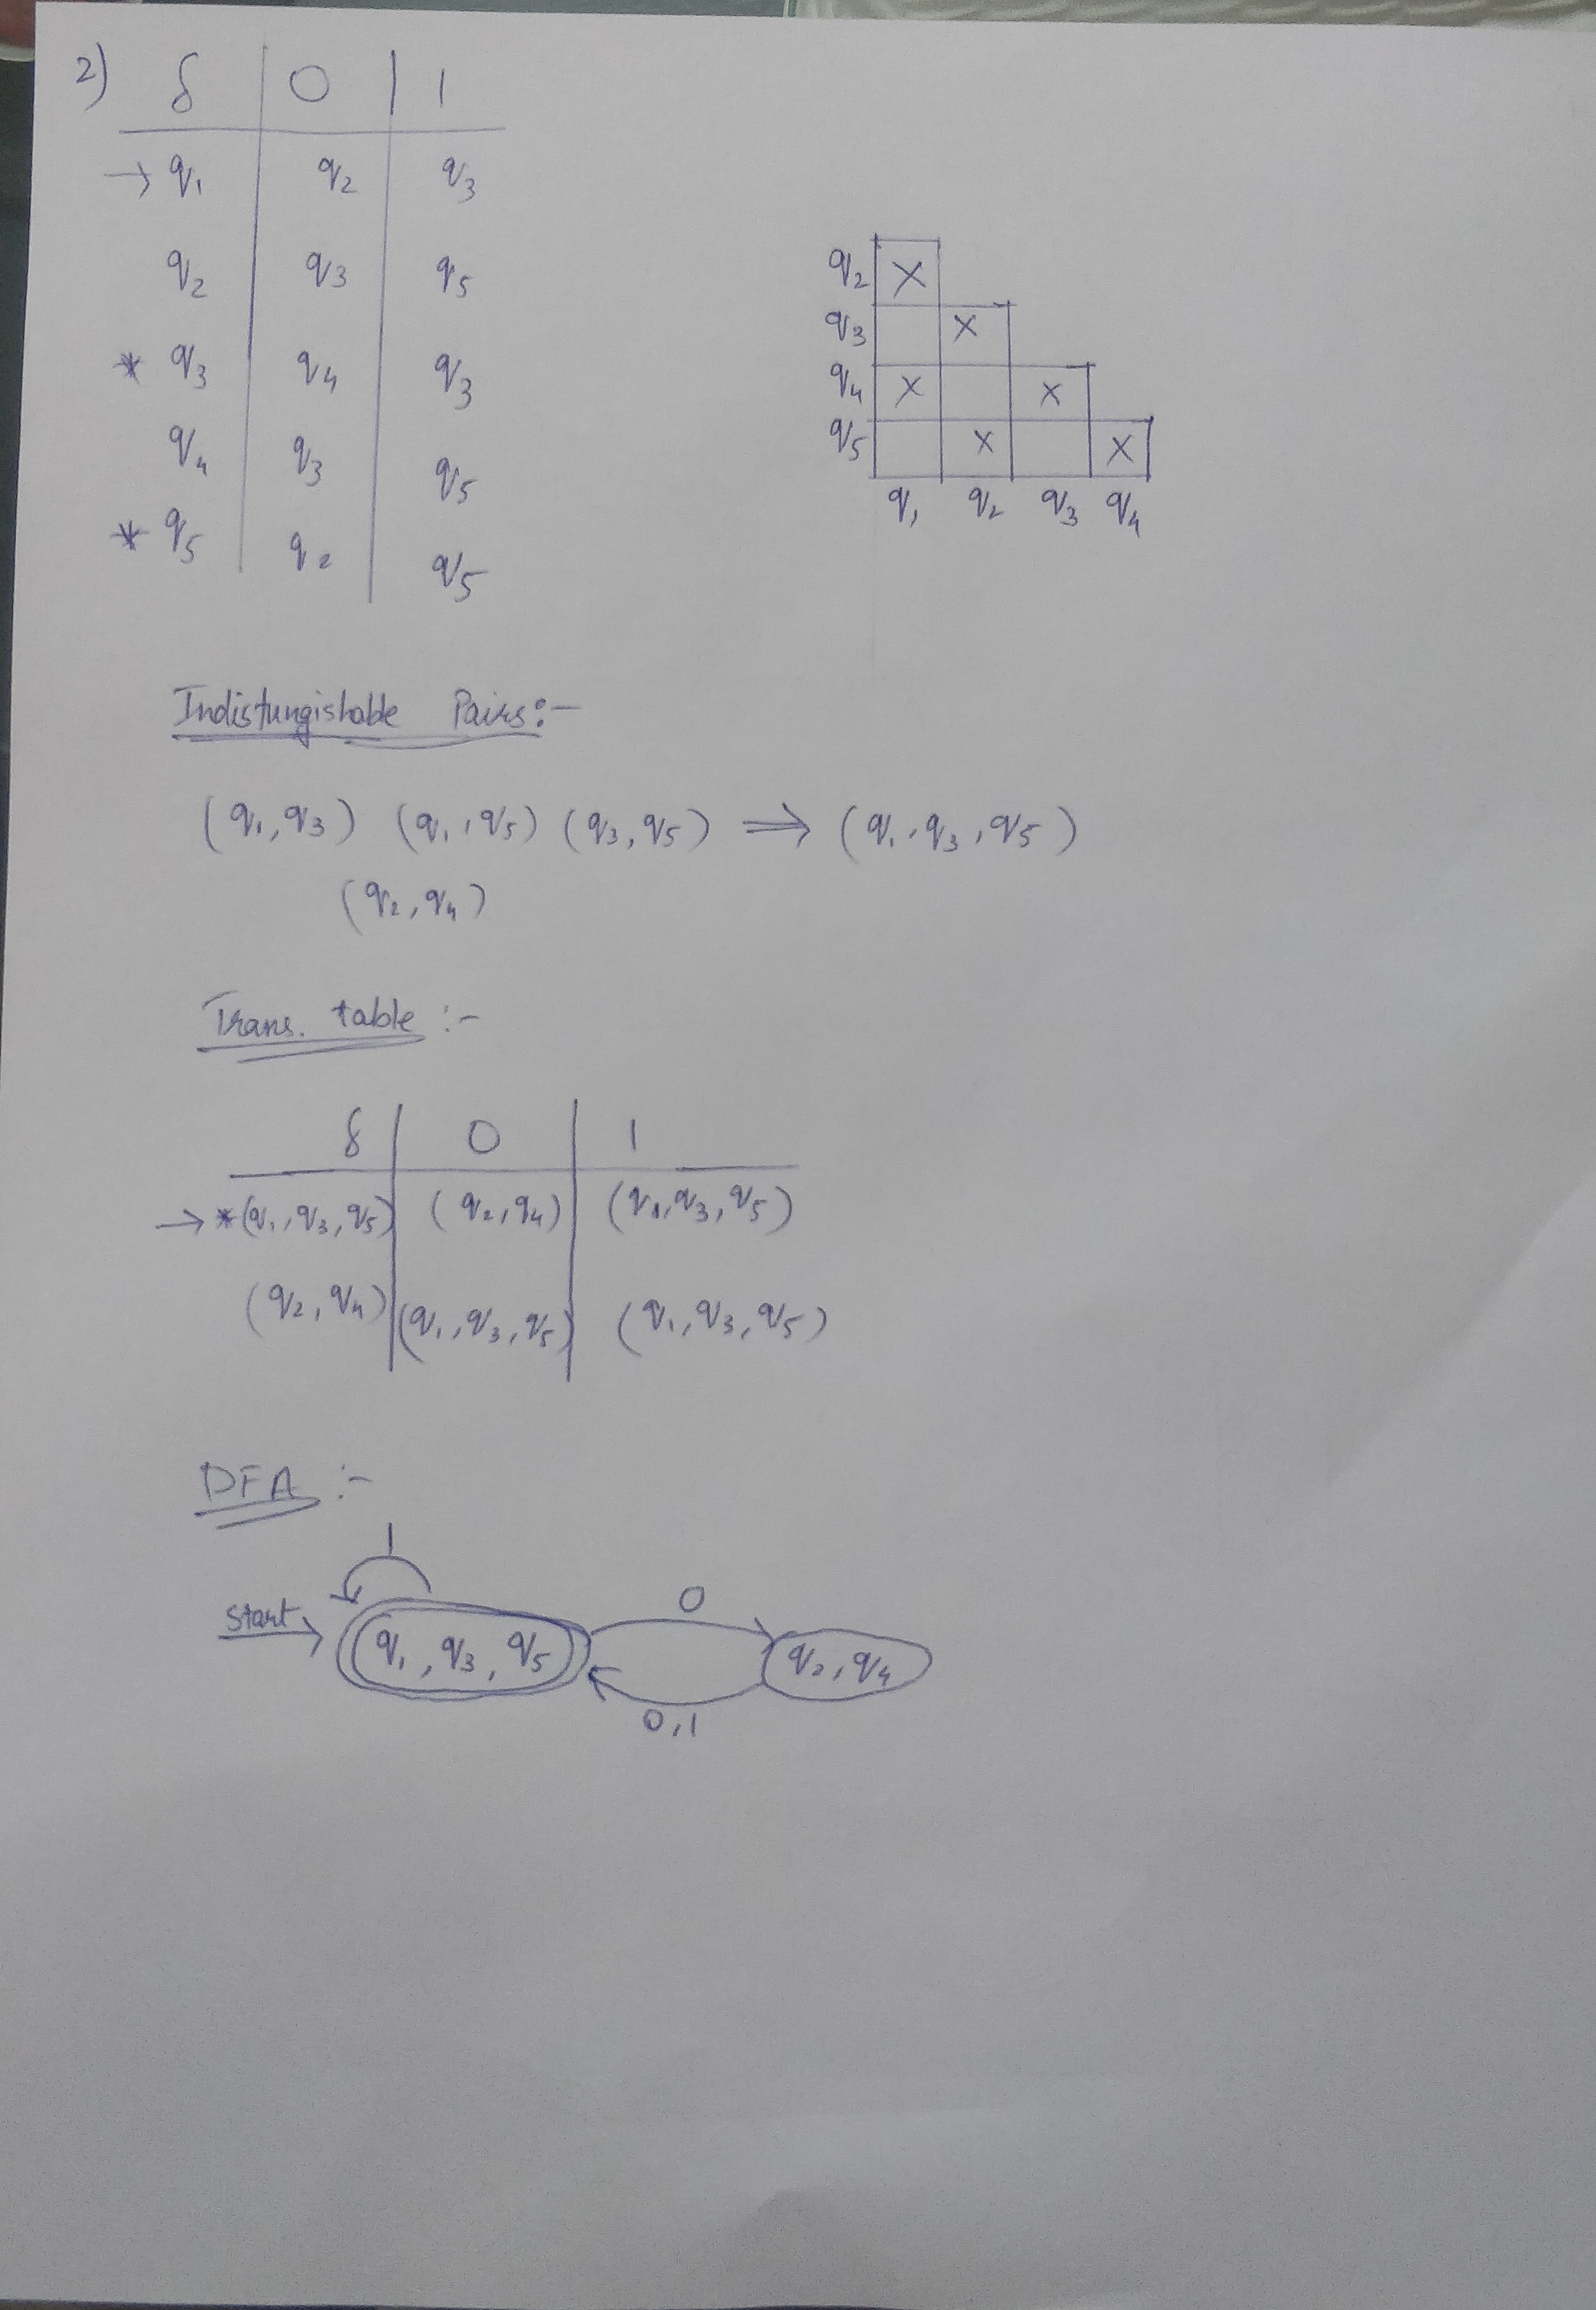 2) δ | 0 | 1
→ q₁ q₂ q₃
q₂ q₃ q₅
* q₃ q₄ q₃
q₄ q₃ q₅
* q₅ q₂ q₅
q₂ X
q₃ X
q₄ X X
q₅ X X
q₁ q₂ q₃ q₄
Indistungishable Pairs:-
(q₁, q₃) (q₁, q₅) (q₃, q₅) ⇒ (q₁, q₃, q₅)
(q₂, q₄)
Trans. table :-
δ | 0 | 1
→ * (q₁, q₃, q₅) (q₂, q₄) (q₁, q₃, q₅)
(q₂, q₄) (q₁, q₃, q₅) (q₁, q₃, q₅)
DFA :-
1
0
start
q₁, q₃, q₅
q₂, q₄
0,1